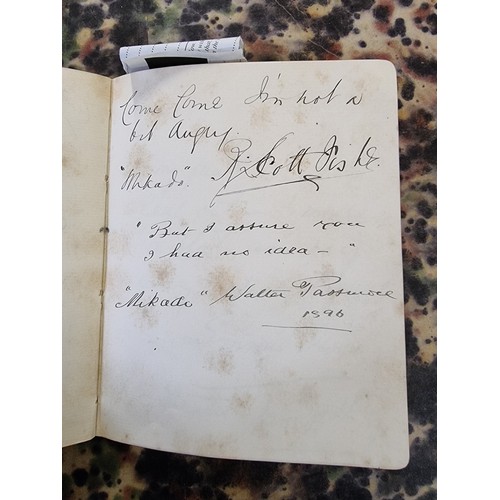 Come Come I'm not a
bit Angry.
"Mikado". R. Scott Fishe.
"But I assure you
I had no idea – "
"Mikado" Walter Passmore
1896